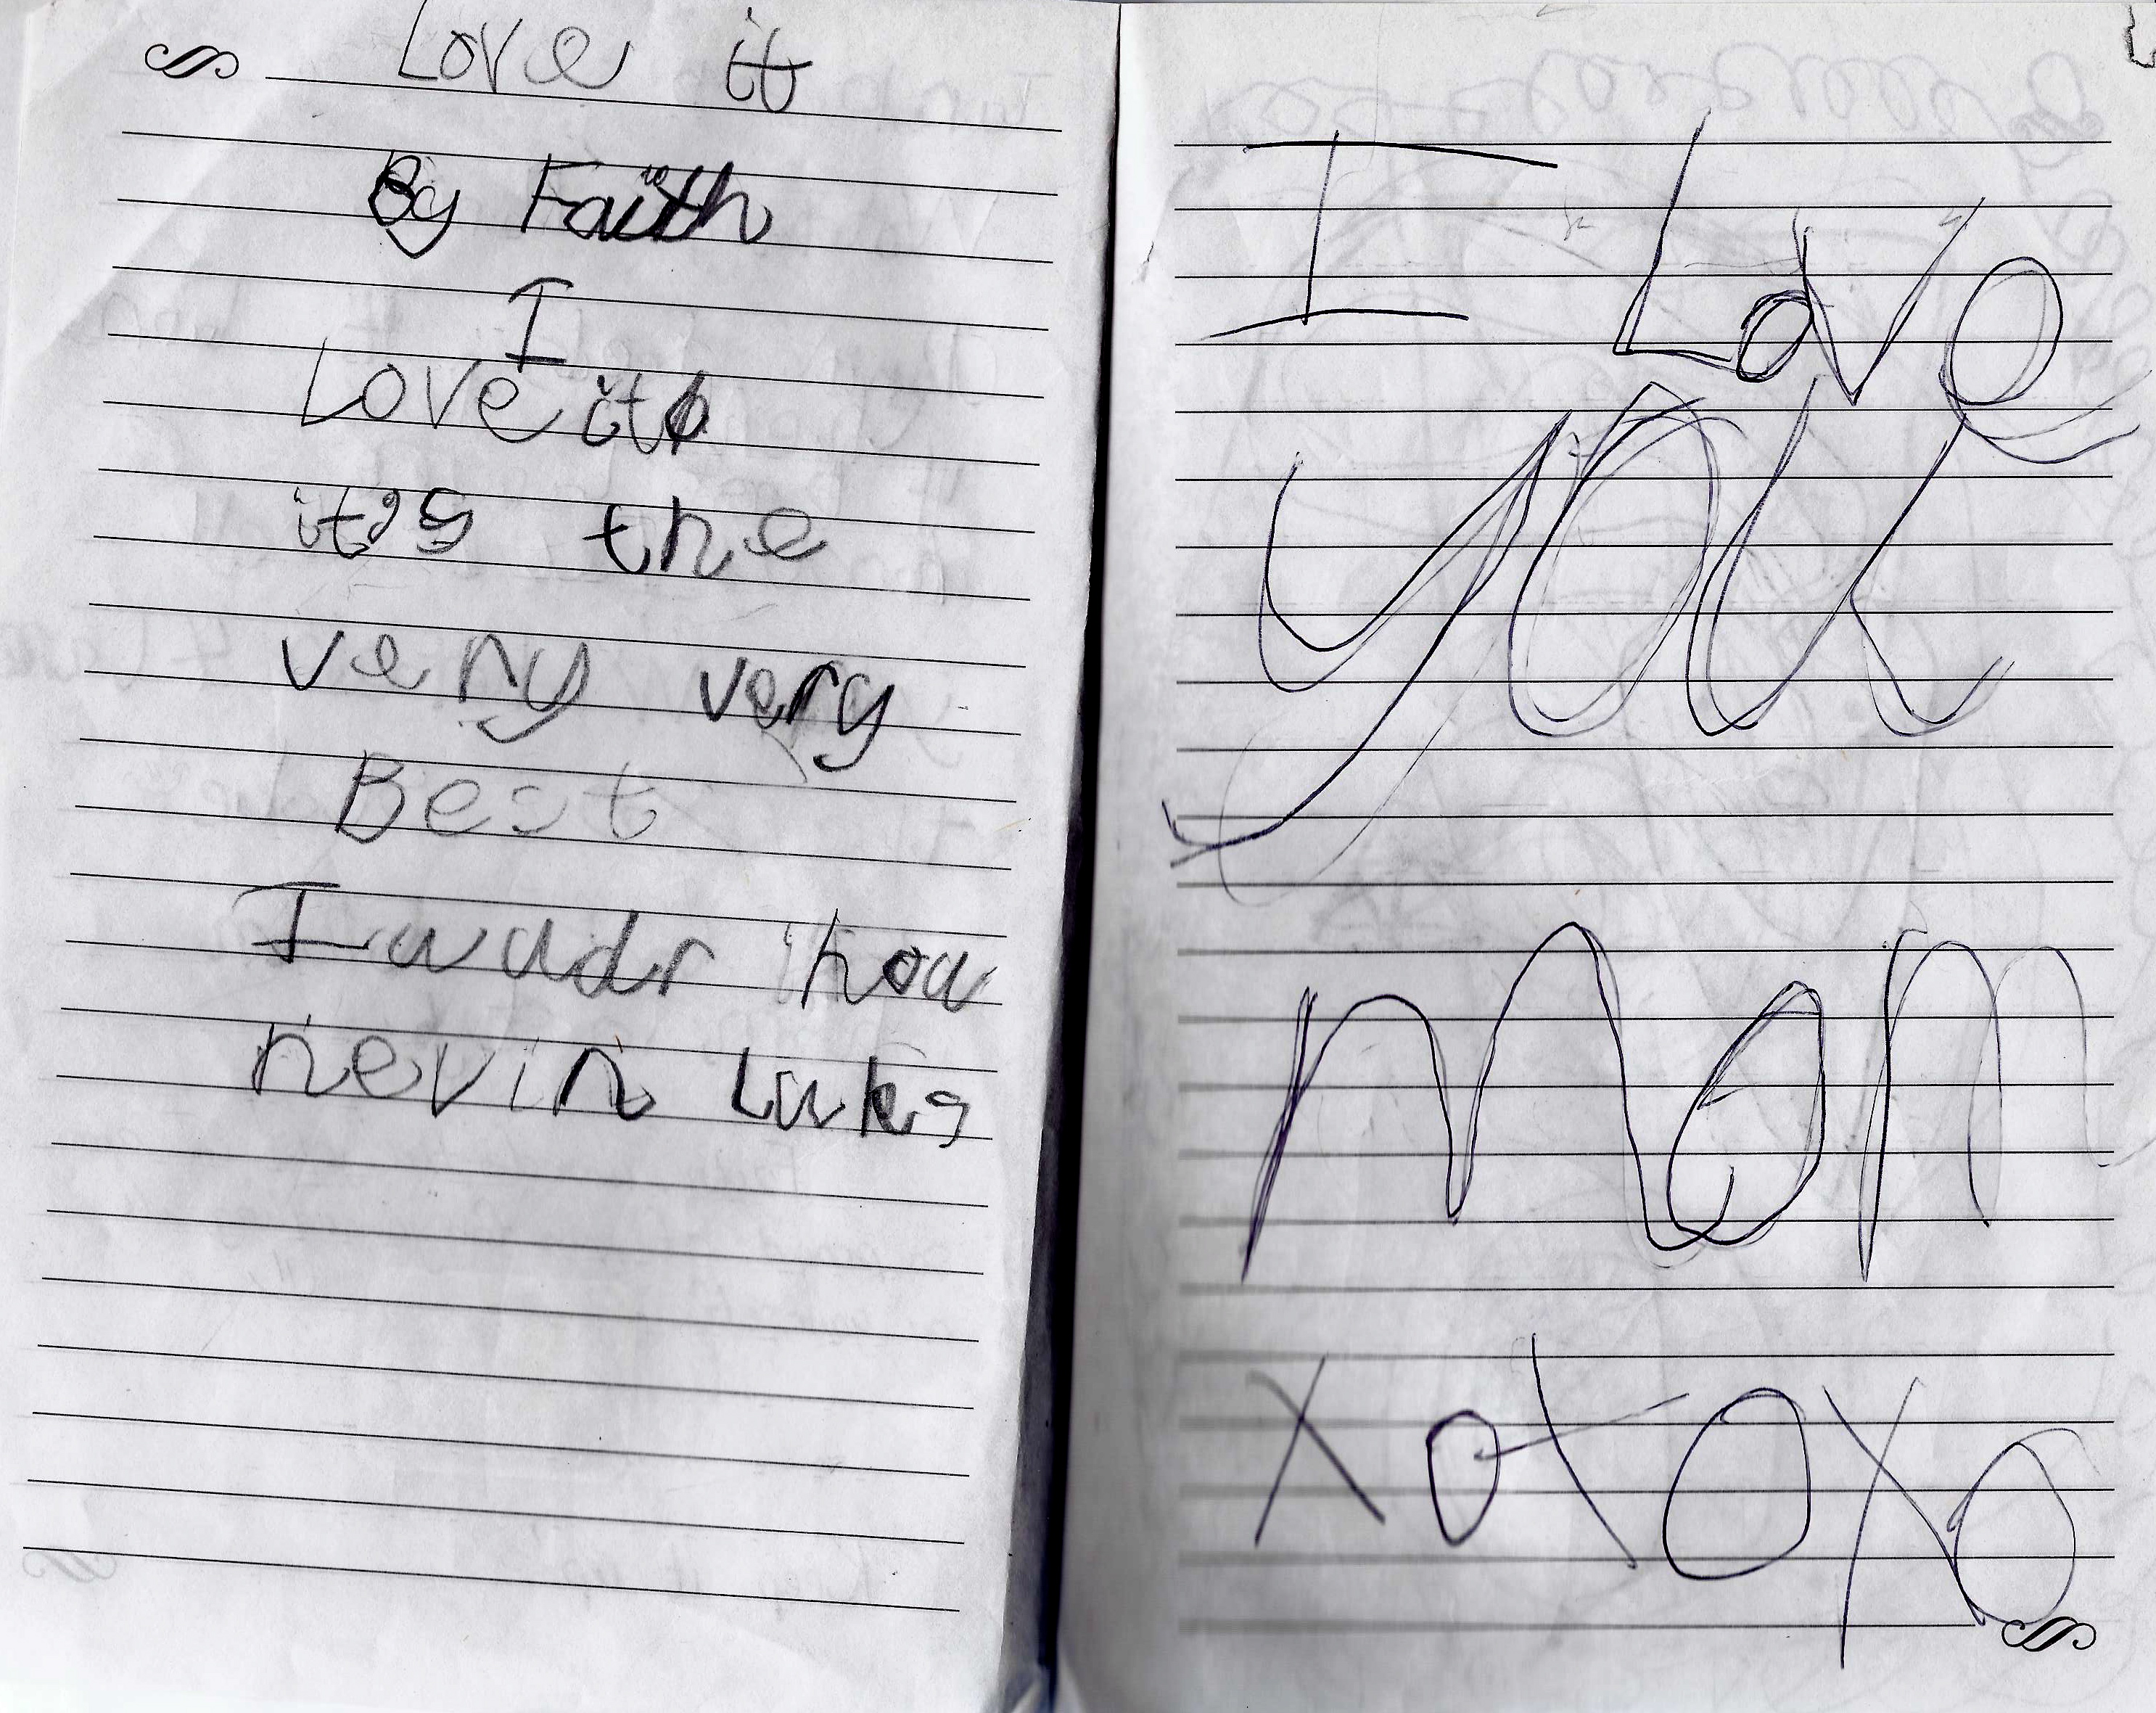 Love it
By Faith
I
Love it
it's the
very very
Best
I wudr hou
nevin Luks
I Love
you
mom
xoxoxo